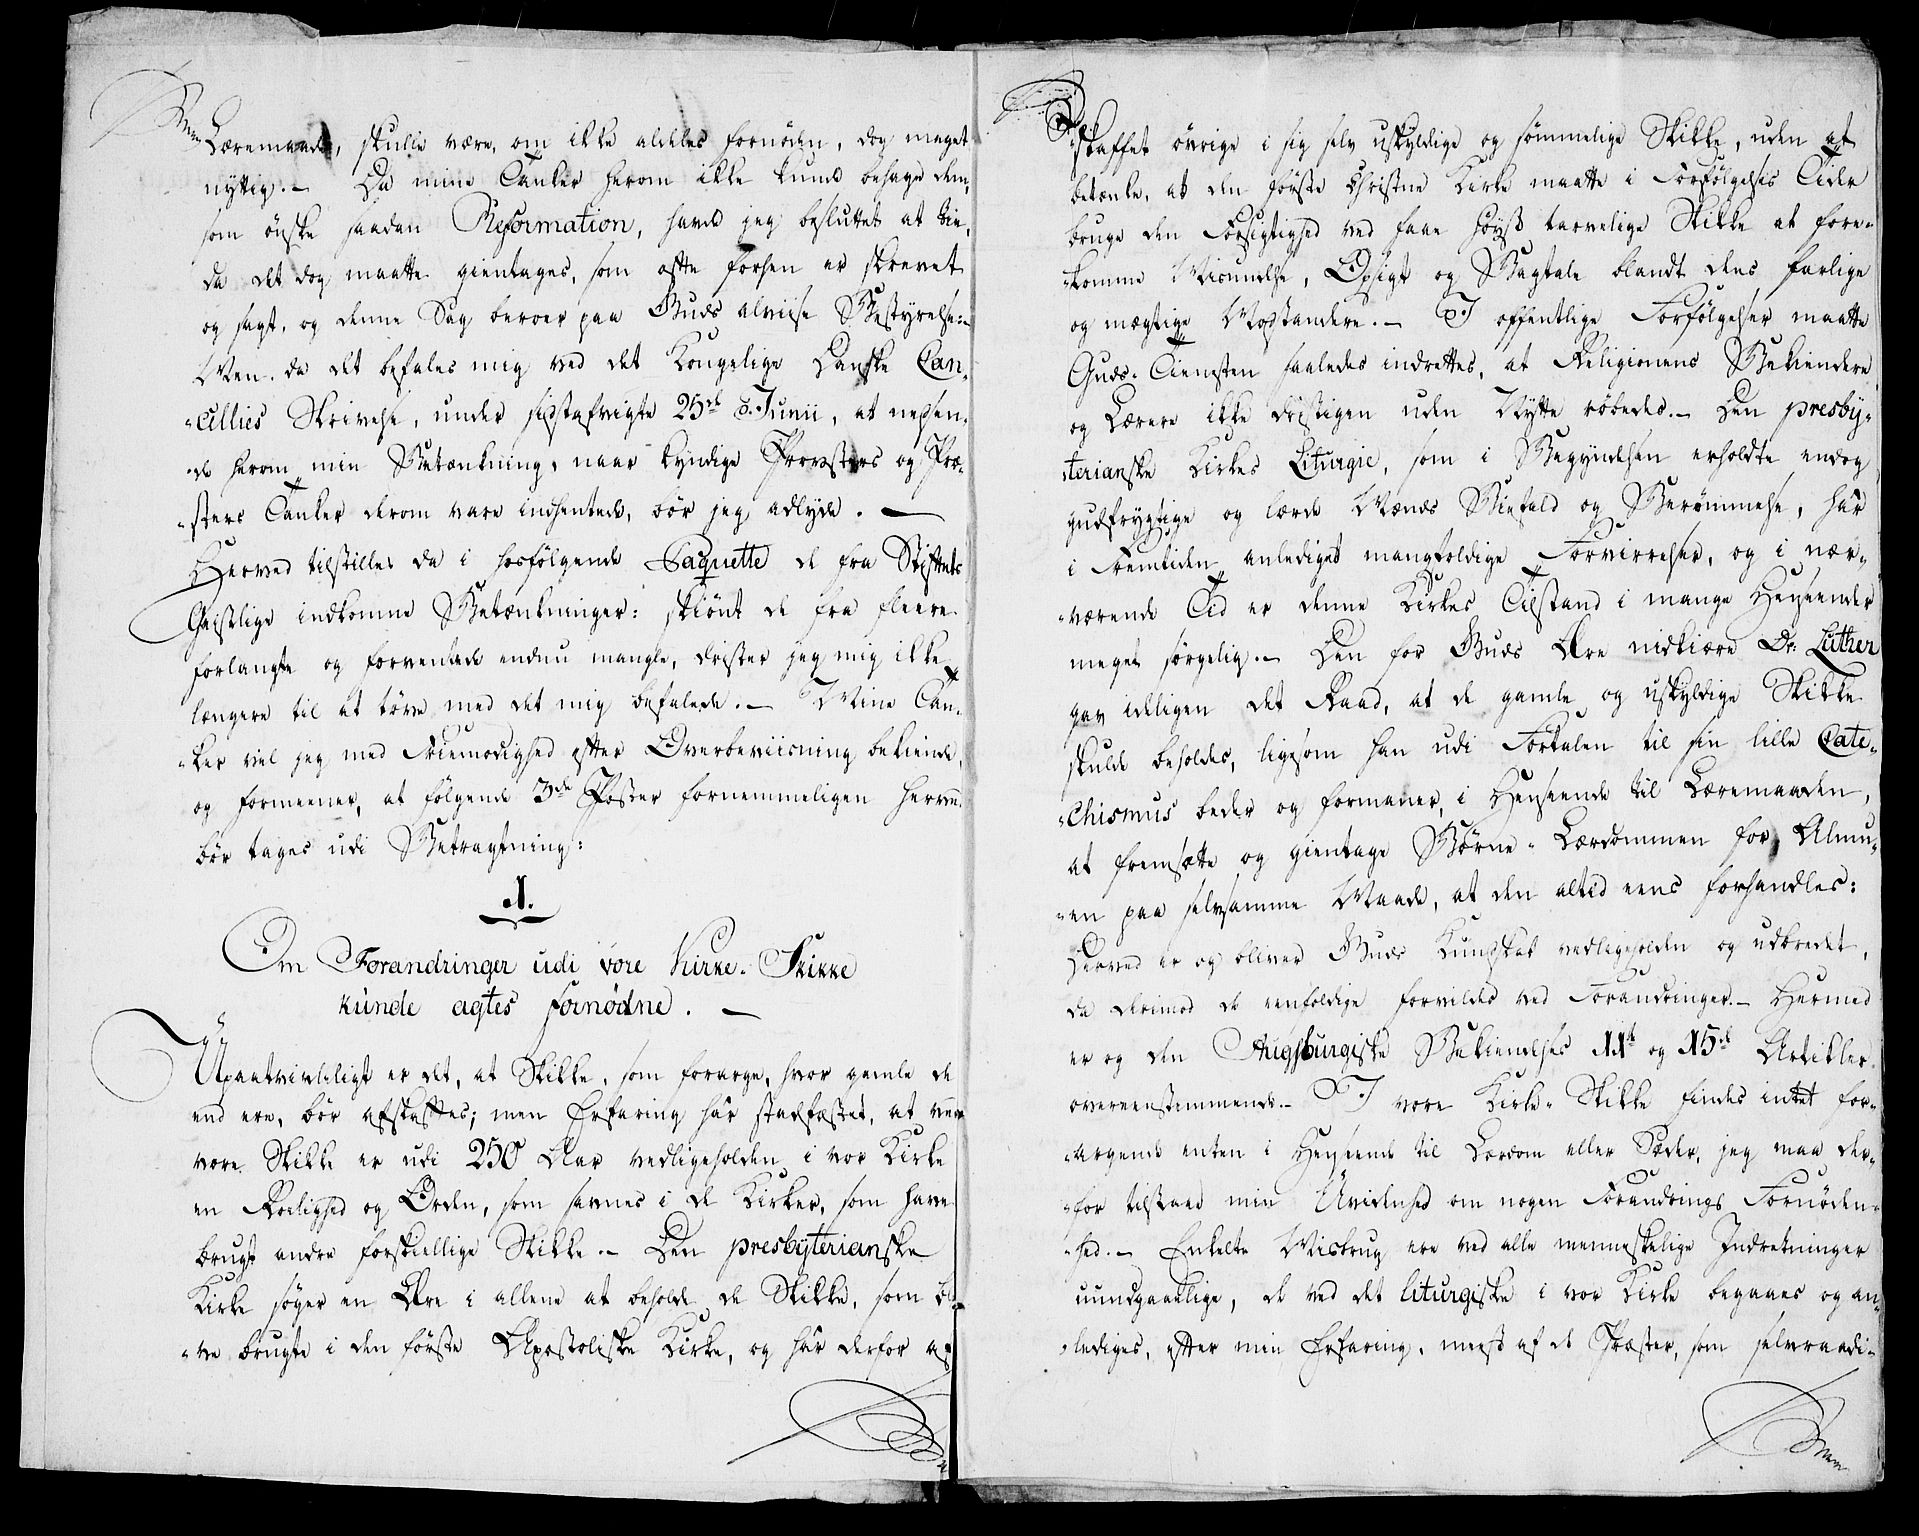 Læremaade, skulle være, om ikke aldeles fornøden, dog meget
nyttig. – Da mine Tanker herom ikke kunde behage dem,
som ønske saadan Reformation, havde jeg besluttet at tie,
da det dog maatte gientages, som ofte forhen er skrevet
og sagt, og denne Sag beroer paa Guds alviise Bestyrelse. –
Men da det befales mig ved det Kongelige Danske Can-
-cellies Skrivelse, under sidstafvigte 25de Junii, at nedsen-
-de herom min Betænkning, naar kyndige Provsters og Præ-
-sters Tanker derom vare indhentede, bør jeg adlyde. –
Herved tilstilles da i hosfølgende Paquette de fra Stiftets
Geistlige indkomne Betænkninger: skiønt de fra fleere
forlangte og forventede endnu mangle, drister jeg mig ikke
længere til at tøve med det mig befalede. – Mine Tan-
-ker vil jeg med Friemodighed efter Overbeviisning bekiende,
og formeener, at følgende 3de Poster fornemmeligen herved
bør tages udi Betragtning:
1.
Om Forandringer udi vore Kirke-Skikke
kunde agtes fornødne. –
Upaatvivleligt er det, at Skikke, som forarge, hvor gamle de
end ere, bør afskaffes; men Erfaring har stadfæstet, at ved
vore Skikke er udi 250 Aar vedligeholden i vor Kirke
en Roelighed og Orden, som savnes i de Kirker, som have
brugt andre forskiellige Skikke. – Den presbyterianske
Kirke søger en Ære i allene at beholde de Skikke, som ble-
-ve brugte i den første Apostoliske Kirke, og har derfor af-
-skaffet øvrige i sig selv uskyldige og sømmelige Skikke, uden at
betænke, at den første Christne Kirke maatte i Forfølgelses Tider
bruge den Forsigtighed ved faae høyst tarvelige Skikke at fore-
-komme Misundelse, Opsigt og Bagtale blandt dens farlige
og mægtige Modstandere. – I offentlige Forfølgelser maatte
Guds-Tienesten saaledes indrettes, at Religionens Bekiendere
og Lærere ikke dristigen uden Nytte røbedes. – Den presby-
terianske Kirkes Liturgie, som i Begyndelsen erholdte endog
gudfrygtige og lærde Mænds Biefald og Berømmelse, har
i Fremtiden anlediget mangfoldige Forvirrelser, og i nær-
-værende Tid er denne Kirkes Tilstand i mange Henseender
meget sørgelig. – Den for Guds Ære nidkiære Dr. Luther
gav ideligen det Raad, at de gamle og uskyldige Skikke
skulde beholdes, ligesom han udi Fortalen til sin lille Cate-
-chismus beder og formaner, i Henseende til Læremaaden,
at fremsætte og gientage Børne-Lærdommen for Almu-
-en paa selvsamme Maade, at den altid eens forhandles:
Derved er og bliver Guds Kundskab vedligeholden og udbredet,
da derimod de eenfoldige forvildes ved Forandringer. – Hermed
er og den Augsburgiske Bekiendelses 11te og 15de Artikler
overeenstemmende. – I vore Kirke-Skikke findes intet for-
-argende enten i Henseende til Lærdom eller Sæder, jeg maa der-
-for tilstaae min Uvidenhed om nogen Forandrings Fornøden-
-hed. – Enkelte Misbrug ere ved alle menneskelige Indretninger
uundgaaelige, de ved det liturgiske i vor Kirke begaaes og an-
-lediges, efter min Erfaring, meest af de Præster, som selvraadi-